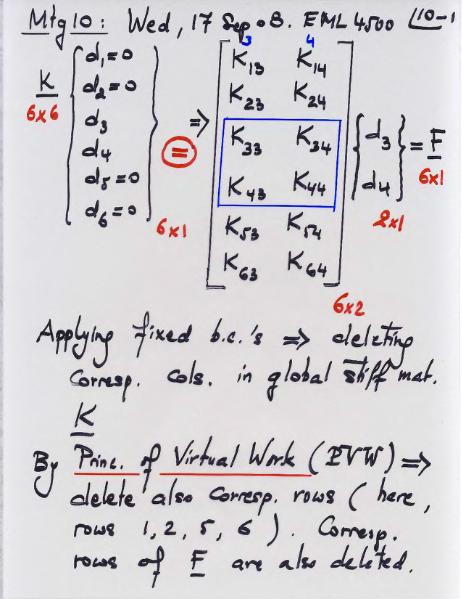 Mtg 10: Wed, 17 Sep 08. EML 4500 10-1
3 4
K { d1=0 d2=0 d3 d4 d5=0 d6=0 } = ⇒ [ K13 K14
K23 K24
K33 K34
K43 K44
K53 K54
K63 K64 ] { d3 d4 } = F
6x6 6x1 6x2 2x1 6x1
Applying fixed b.c.'s ⇒ deleting
corresp. cols. in global stiff mat.
K
By Princ. of Virtual Work (PVW) ⇒
delete also corresp. rows (here,
rows 1, 2, 5, 6). Corresp.
rows of F are also deleted.